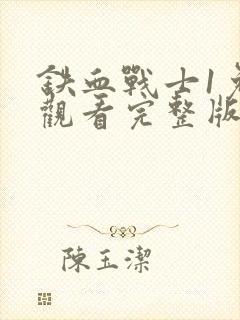 鉄血戰士1免
觀看完整版
陳玉潔